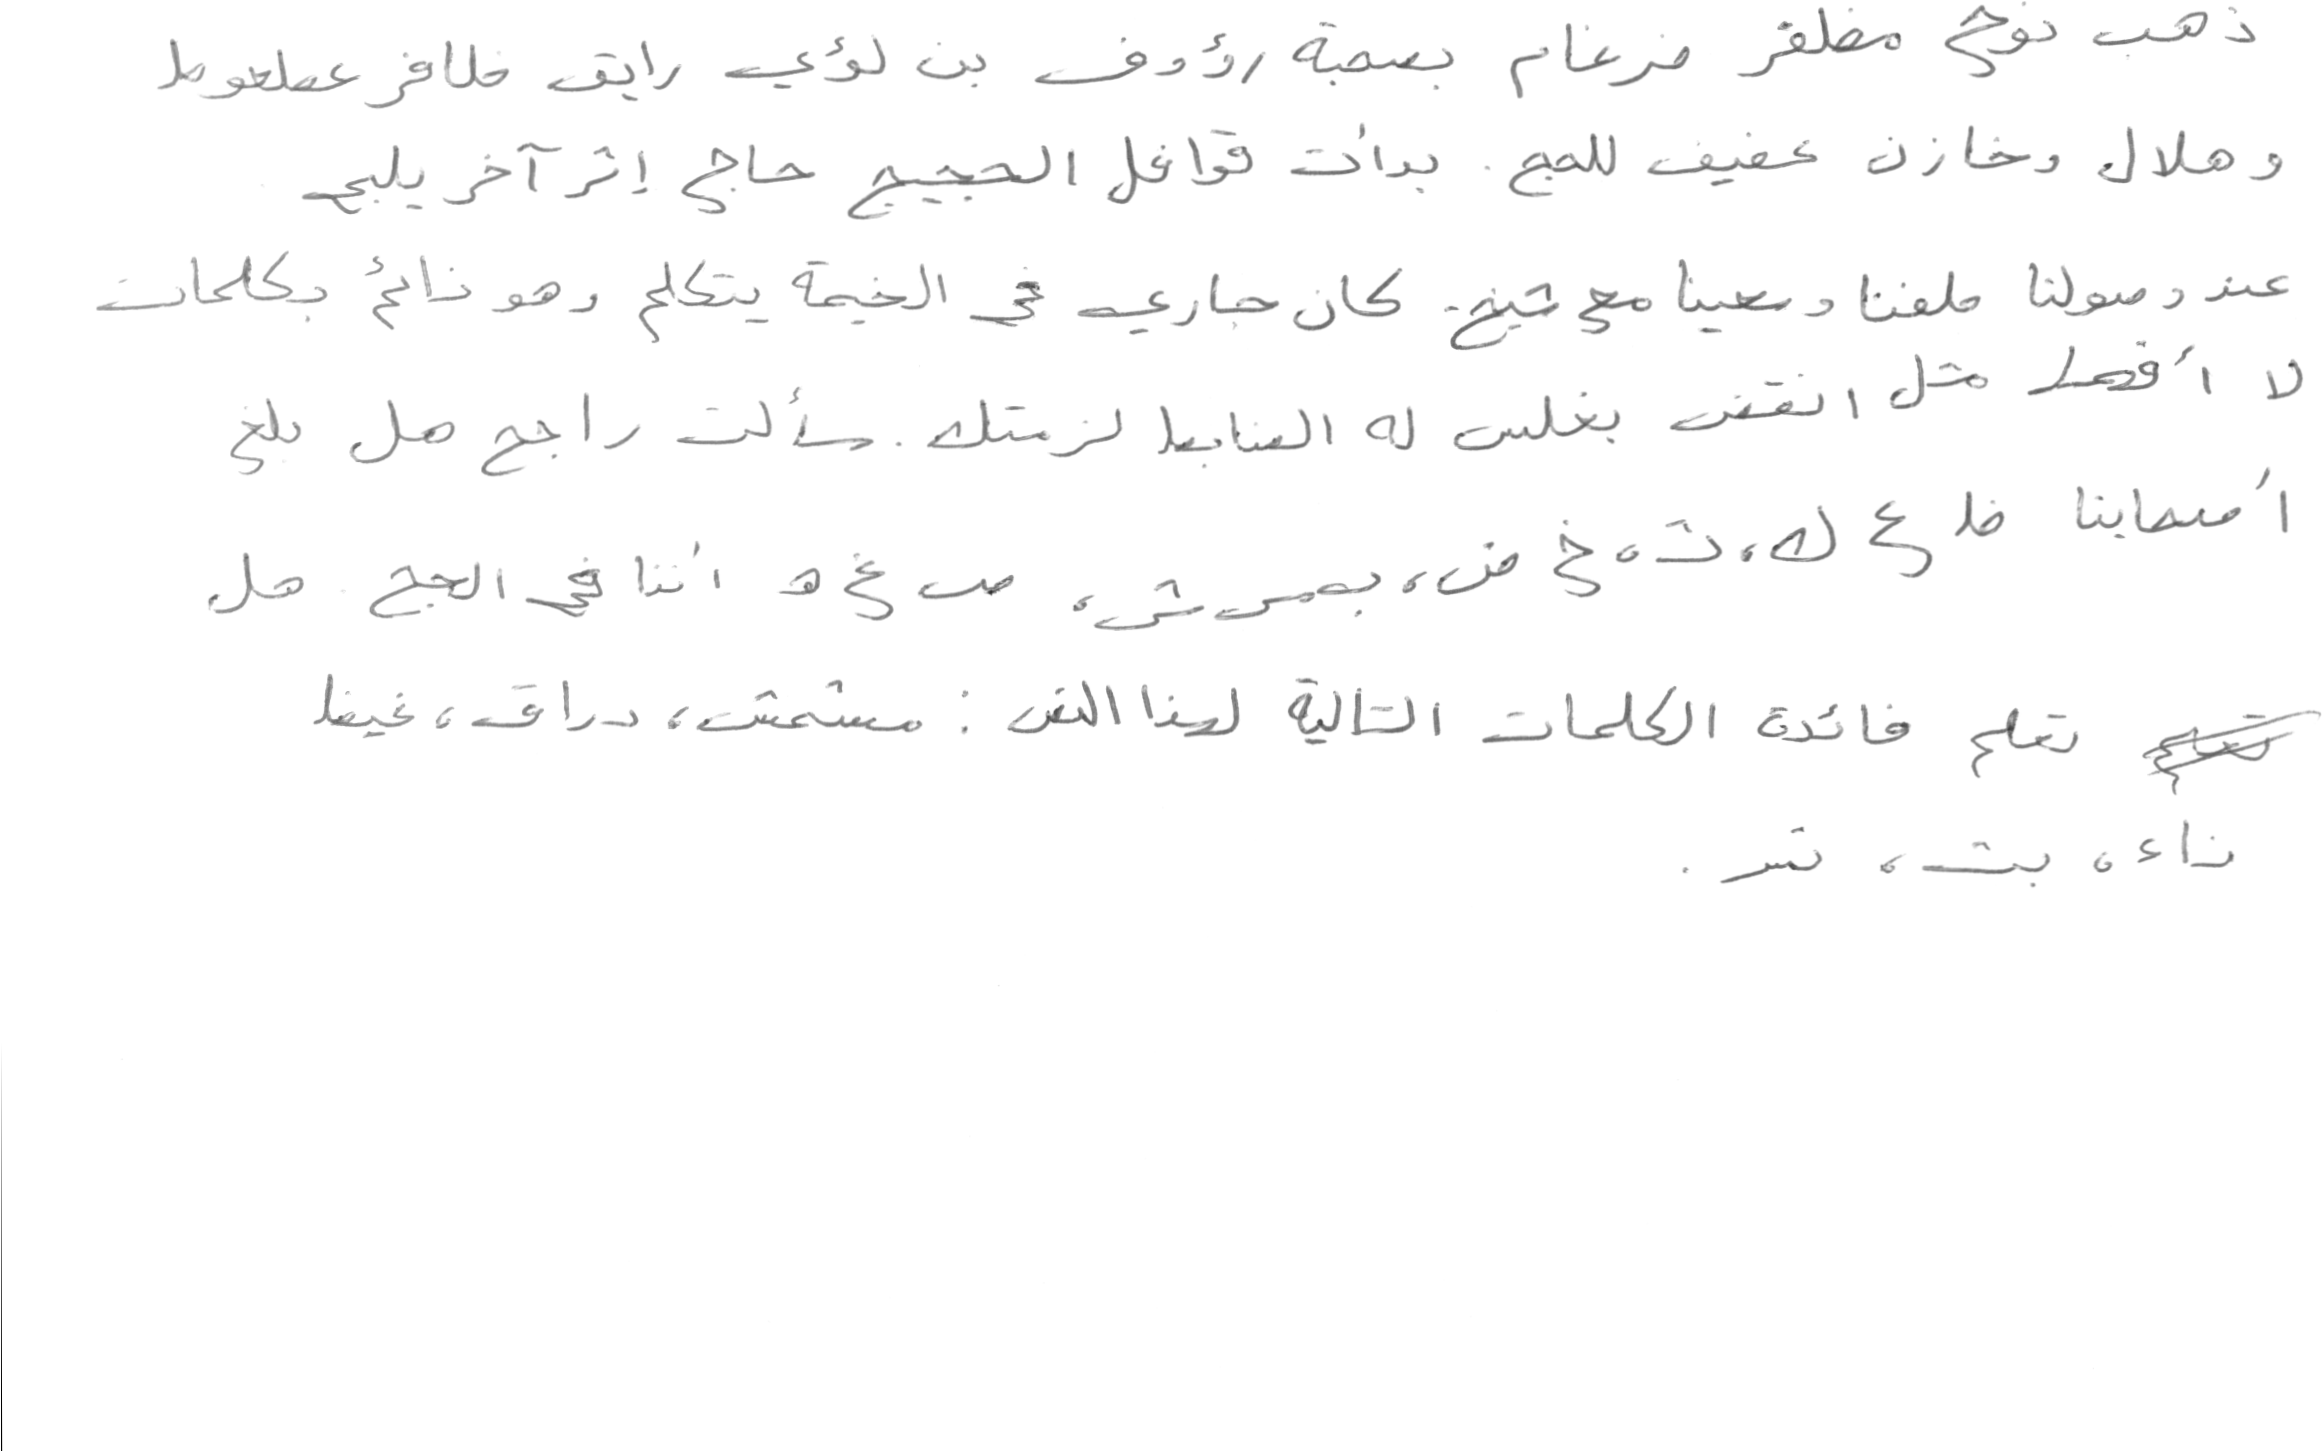 ذهب نوح مظفر ضرغام بصحبة رؤوف بن لؤي رايق ظافر عطعوط
وهلال وخازن عفيف للحج. بدأت قوافل الحجيج حاج إثر آخر يلبي
عند وصولنا طفنا وسعينا مع شيخ. كان جاري في الخيمة يتكلم وهو نائم بكلمات
لا أقط مثل انقض بغلس له الضابط لزمتك. سألت راجح هل بلغ
أصحابنا ظ ع ك، ث، خ ض، بص س ش، ص غ ه أننا في الحج. هل
تعلم فائدة الكلمات التالية لهذا النص: مشمش، دراق، غيظ
ناء، بث، نتر.